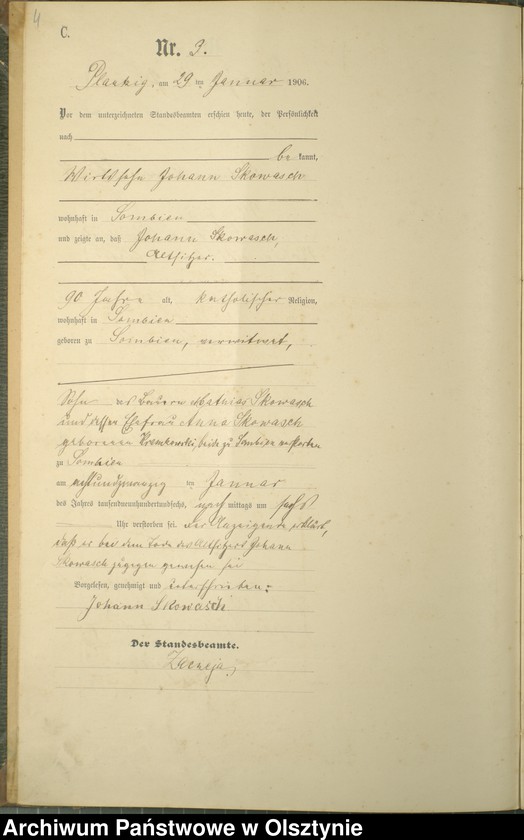 4
C.
Nr. 3.
Plautzig, am 29 ten Januar 1906.
Vor dem unterzeichneten Standesbeamten erschien heute, der Persönlichkeit
nach
be kannt,
Wirtssohn Johann Skowasch
wohnhaft in Sombien
und zeigte an, daß Johann Skowasch,
Altsitzer.
90 Jahre alt, katholischer Religion,
wohnhaft in Sombien
geboren zu Sombien, verwitwet,
Sohn des Bauern Mathias Skowasch
und dessen Ehefrau Anna Skowasch
geborenen beide zu Sombien verstorben
zu Sombien
am achtundzwanzig ten Januar
des Jahres tausendneunhundertsechs, nach mittags um sechs
Uhr verstorben sei. Der Anzeigende erklärt,
daß er bei dem Tode des Altsitzers Johann
Skowasch zugegen gewesen sei
Vorgelesen, genehmigt und unterschrieben:
Johann Skowasch
Der Standesbeamte.
Archiwum Państwowe w Olsztynie